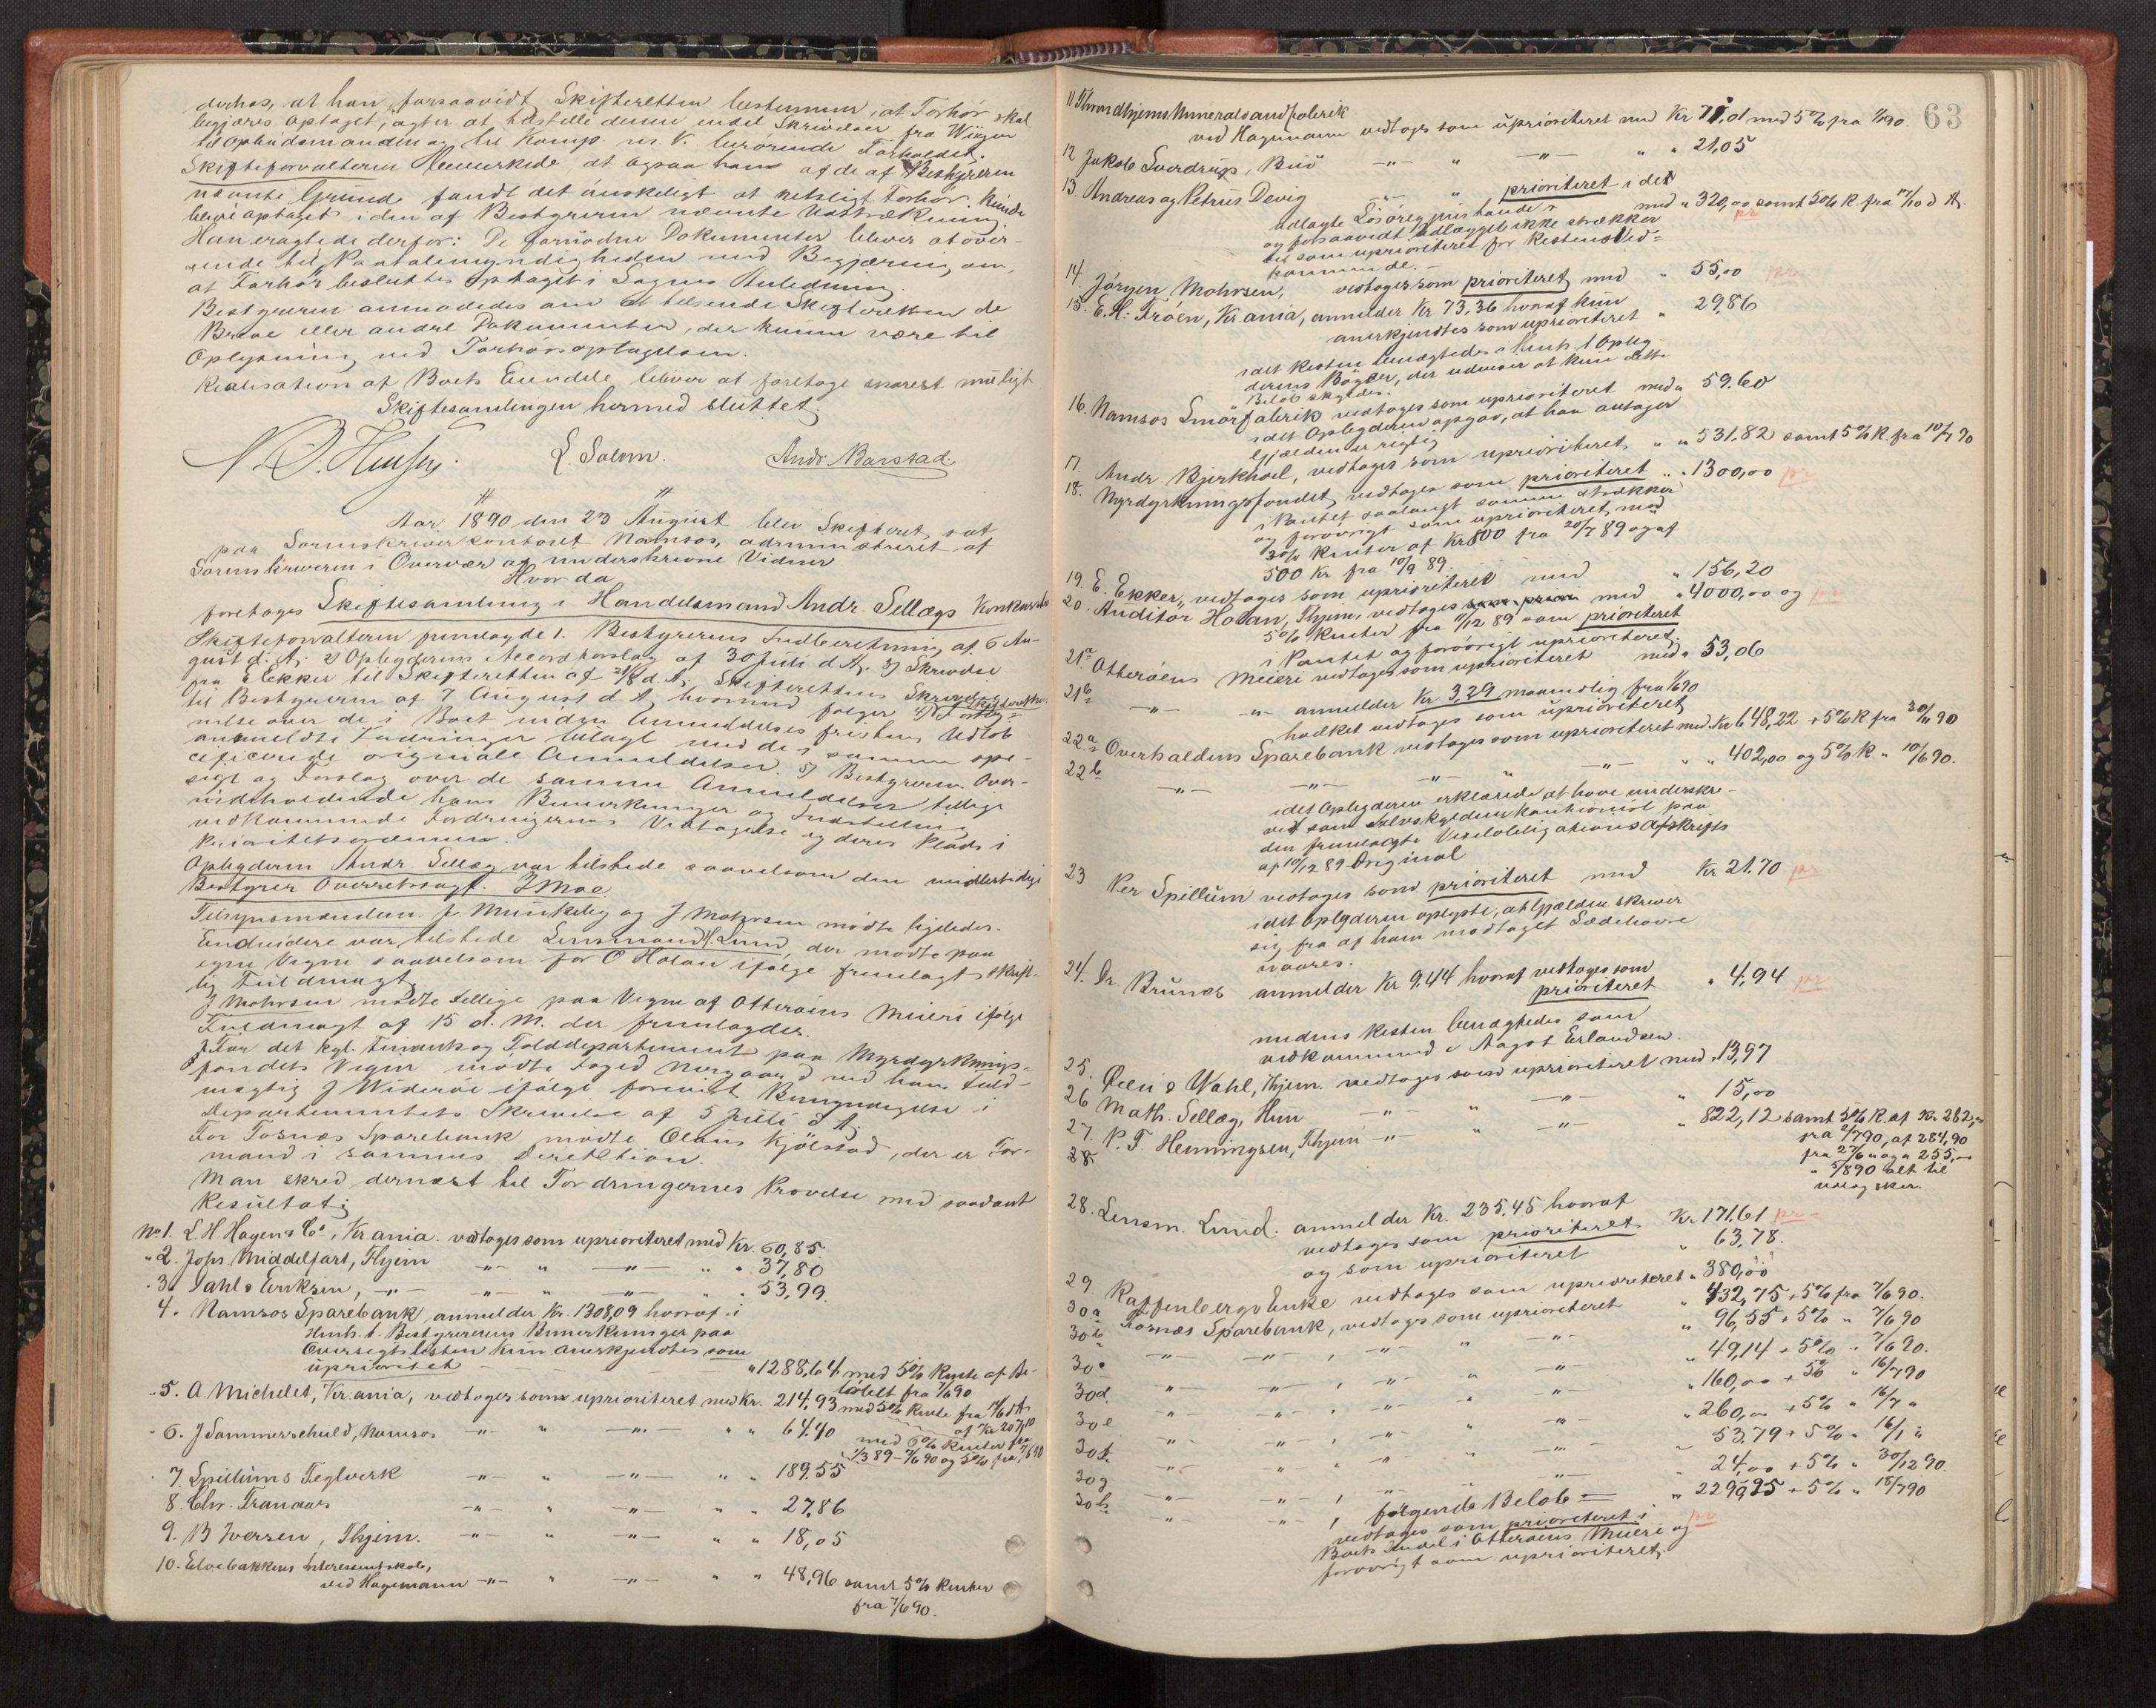 derhos, at han, forsaavidt Skifteretten bestemmer, at Forhør skal
begjæres optaget, agter at tilstille denne endel Skrivelser fra
til Opbudsmanden og til Komp. berørende Forholdet.
Skifteforvalteren bemerkede, at ogsaa han af de af Bestyreren
nævnte Grunde fandt det ønskeligt at retsligt Forhør kunde
blive optaget i den af Bestyreren nævnte Udstrækning
Han eragtede derfor: De fornødne Dokumenter bliver at over-
sende til Paatalemyndigheden med Begjæring om,
at Forhør besluttes optaget i Sagens Anledning.
Bestyreren anmodedes om at tilsende Skifteretten de
Breve eller andre Dokumenter, der kunne være til
Oplysning ved Forhørsoptagelsen.
Realisation af Boets Eiendele bliver at foretage snarest muligt
Skiftesamlingen hermed sluttet
L Salem. Andr Barstad
Aar 1890 den 23 August blev Skifteret sat
paa Sorenskriverkontoret Namsos, administreret af
Sorenskriveren i Overvær af underskrevne Vidner
Hvor da
foretoges Skiftesamling i Handelsmand Andr. Sellægs Konkursbo
Skifteforvalteren fremlagde 1. Bestyrerens Indberetning af 6 Au-
gust d. A. 2) Opbyderens Accordforslag af 30 Juli d A. 3) Skrivelse
fra E Ekker til Skifteretten af 21/8 d. A. Skifterettens Skrivelse
til Bestyreren af 7 August d. A, hvormed følger 4) Skifterettens Forteg-
nelse over de i Boet inden Anmeldelsesfristens Udløb
anmeldte Fordringer bilagt med de samme spe-
cificerede originale Anmeldelser. 5) Bestyrerens Over-
sigt og Forslag over de samme Anmeldelser tillige
indeholdende hans Bemerkninger og Indstilling
vedkommende Fordringernes Vedtagelse og deres Plads i
Prioritetsordenen.
Opbyderen Andr. Sellæg var tilstede saavelsom den midlertidige
Bestyrer Overretssagf. J Moe
Tilsynsmændene J. Munkeby og J Mohrsen mødte ligeledes.
Endvidere var tilstede Lensmand Lund, der mødte paa
egne Vegne saavelsom for O Holan ifølge fremlagt skrift-
lig Fuldmagt
J Mohrsen mødte tillige paa Vegne af Otterøens Meieri ifølge
Fuldmagt af 15 d. M. der fremlagdes.
For det kgl. Finants og Tolddepartement paa Myrdyrknings-
fondets Vegne mødte Foged Nergaard ved hans Fuld-
mægtig J Widerøe ifølge forevist Bemyndigelse i
Departementets Skrivelse af 5 Juli d A.
For Fosnæs Sparebank mødte Olaus Kjølstad, der er For-
mand i sammes Direktion.
Man skred dernæst til Fordringernes Prøvelse med saadant
Resultat:
No 1. L. H Hagen & Co, Kr.ania. vedtoges som uprioriteret med Kr. 60,85.
" 2. Johs. Middelfart, Thjem —"— " —"— " " 37,80
" 3. Dahl & Eriksen, —"— —"— " —"— " " 53,99
4. Namsos Sparebank anmelder Kr. 1308,09 hvoraf i
Henh. t. Bestyrerens Bemerkninger paa
Oversigtslisten kun anerkjendtes som
uprioritet — — — " 1288,64 med 5% Rente af Be-
løbet fra 7/6 90
" 5. A Michelet, Kr.ania, vedtoges som uprioriteret med Kr. 214,93 med 5% Rente fra 7/6 d A.
" 6. J Sammerschuld, Namsos —"— " —"— " " 64.40 med 6% Renter fra
1/3 89 - 7/6 90 og 5% fra 7/6 90
" 7. Spillums Teglverk —"— " —"— " " 189.55
8. Chr. Tranaas —"— " —"— " " 27,86
9. B Iversen, Thjem. —"— " —"— " " 18,05
10. Elvebakkens Interessentskab,
ved Hagemann —"— " —"— " " 48,96 samt 5% Renter
fra 7/6 90.
63
11 Throndhjems Mineralvandfabrik
ved Hagemann vedtoges som uprioriteret med Kr 71, med 5% fra 7/6 90
12 Jakob Sverdrup, —"— " —"— " " 21,05
13 Andreas og Petrus Devig —"— " prioriteret i det
udlagte Løsøre med " 320,00 samt 5% R. fra d A.
og forsaavidt Udlægget ikke strækker pr
til som uprioriteret for Restens Ved-
kommende.
14. Jørgen Mohrsen, vedtoges som prioriteret med " 55,00 pr
15. E. A. Trøen, Kr.ania, anmelder Kr 73,36 hvoraf kun
anerkjendtes som uprioriteret " 29,86
idet Resten benægtedes i Henh. t Opby-
derens Bøger, der udviser at kun dette
Beløb skyldes.
16. Namsos Smørfabrik vedtoges som uprioriteret med " 59.60
idet Opbyderen opgav, at han antager
Gjælden er rigtig
17. Andr Bjerkhoel, vedtoges som uprioriteret " " 531.82 samt 5% R. fra 10/7 90
18. Myrdyrkningsfondet, vedtoges som prioriteret " " 1300,00 pr
i Pantet saalangt samme strækker
og forøvrigt som uprioriteret med
3% Renter af Kr 800 fra 20/7 89 og af
500 Kr fra 10/9 89.
19. E. Ekker, vedtoges som uprioriteret med " 156,20
20. Auditør Holan, Thjem, vedtoges med " 4000,00 og
5% Renter fra 11/12 89 som prioriteret
i Pantet og forøvrigt uprioriteret.
21a Otterøens Meieri vedtoges som uprioriteret med " 53,06
21b —"— —"— anmelder Kr. 3,29 maanedlig fra 90
hvilket vedtoges som uprioriteret
22a Overhaldens Sparebank vedtoges som uprioriteret med Kr 648,22 + 5% R fra 90
22b —"— —"— —"— " —"— " " 402,00 og 5% R. " 10/6 90.
idet Opbyderen erklærede at have underskre-
vet som Selvskyldnerkautionist paa
den fremlagte Vexelobligations Afskrifts
af 10/12 89 Original
23 Per Spillum vedtoges som prioriteret med Kr 21.70 pr
idet Opbyderen oplyste, at Gjælden skriver
sig fra af ham modtaget Sædehavre
iaares.
24. Dr Brunæs anmelder Kr 9.44 hvoraf vedtoges som
prioriteret " 4,94 pr
medens Resten benægtedes som
vedkommende Aagot Erlandsen.
25. Øien & Wahl, Thjem. vedtoges som uprioriteret med " 13,97
26 Math. Sellæg, Hun —"— " —"— " 15,00
27. P. F Henningsen, Thjem —"— " —"— " 822,12 samt 5% R. af Kr 282,
28 fra 2/7 90, af 284,90
fra 27/6 " og af 255,00
" 5/8 90 alt til
udlæg sker.
28. Lensm. Lund. anmelder Kr. 235.45 hvoraf
vedtoges som prioriteret Kr 171,61 pr -
og som uprioriteret " 63,78.
29. Raffenbergs Enke vedtoges som uprioriteret " 380,00
30a Fosnæs Sparebank, vedtoges som uprioriteret " 432,75 + 5% fra 7/6 90.
30b —"— —"— , —"— " —"— " 96,55 + 5% " 7/6 90
30c —"— —"— , —"— " —"— " 49,14 + 5% " 7/6 90.
30d. —"— —"— , —"— " —"— " 160,00 + 5% " 16/7 90
30e —"— —"— , —"— " —"— " 260,00 + 5% " 16/7 "
30f. —"— —"— , —"— " —"— " 53.79 + 5% " 16/1 "
30g —"— —"— , —"— " —"— " 24,00 + 5% " 30/12 90.
30h —"— —"— , følgende Beløb = " 2299,25 + 5% " 18/7 90
vedtoges som prioriteret i pr
Boets Andel i Otterøens Meieri og
forøvrigt som uprioriteret.